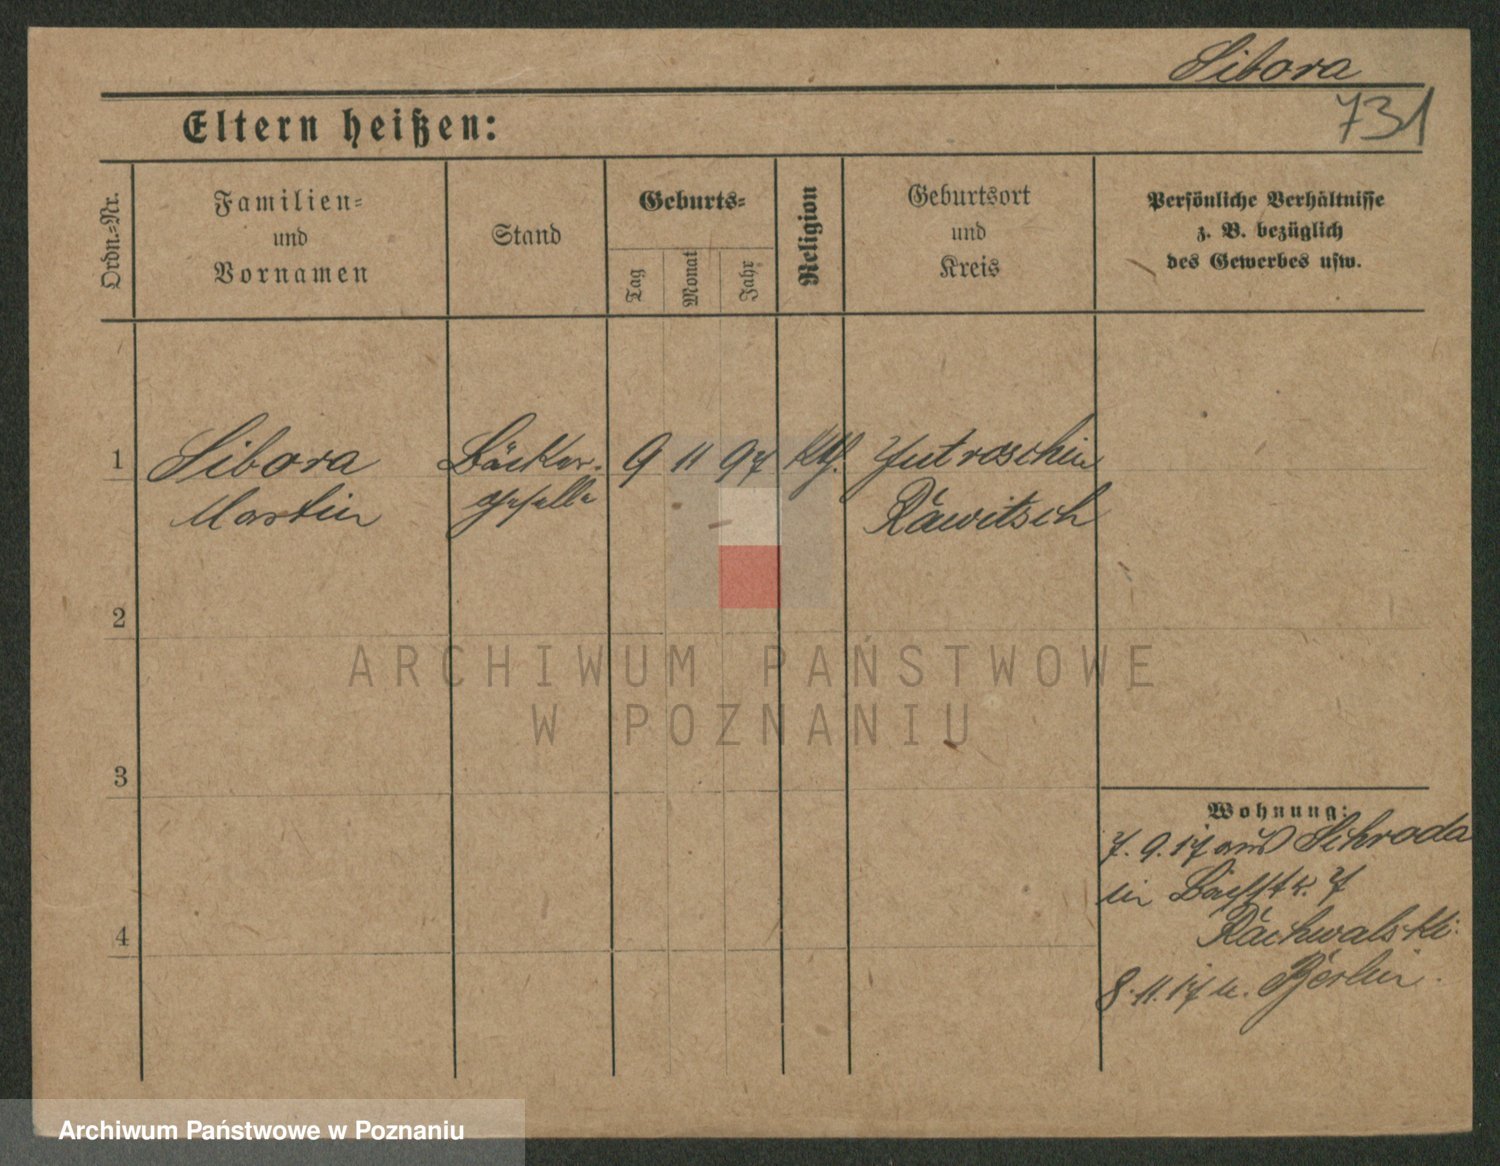 Sibora
731
Eltern heißen:
Ordn.-Nr.
Familien-
und
Vornamen
Stand
Geburts-
Tag
Monat
Jahr
Religion
Geburtsort
und
Kreis
Persönliche Verhältnisse
z. B. bezüglich
des Gewerbes usw.
1 Sibora Bäcker- 9 11 97 kth. Jutroschin
Martin geselle Rawitsch
2
ARCHIWUM PAŃSTWOWE
W POZNANIU
3
Wohnung:
7.9.17 aus Schroda
in 7
Rachwalski
4
8.11.17 n. Berlin.
Archiwum Państwowe w Poznaniu